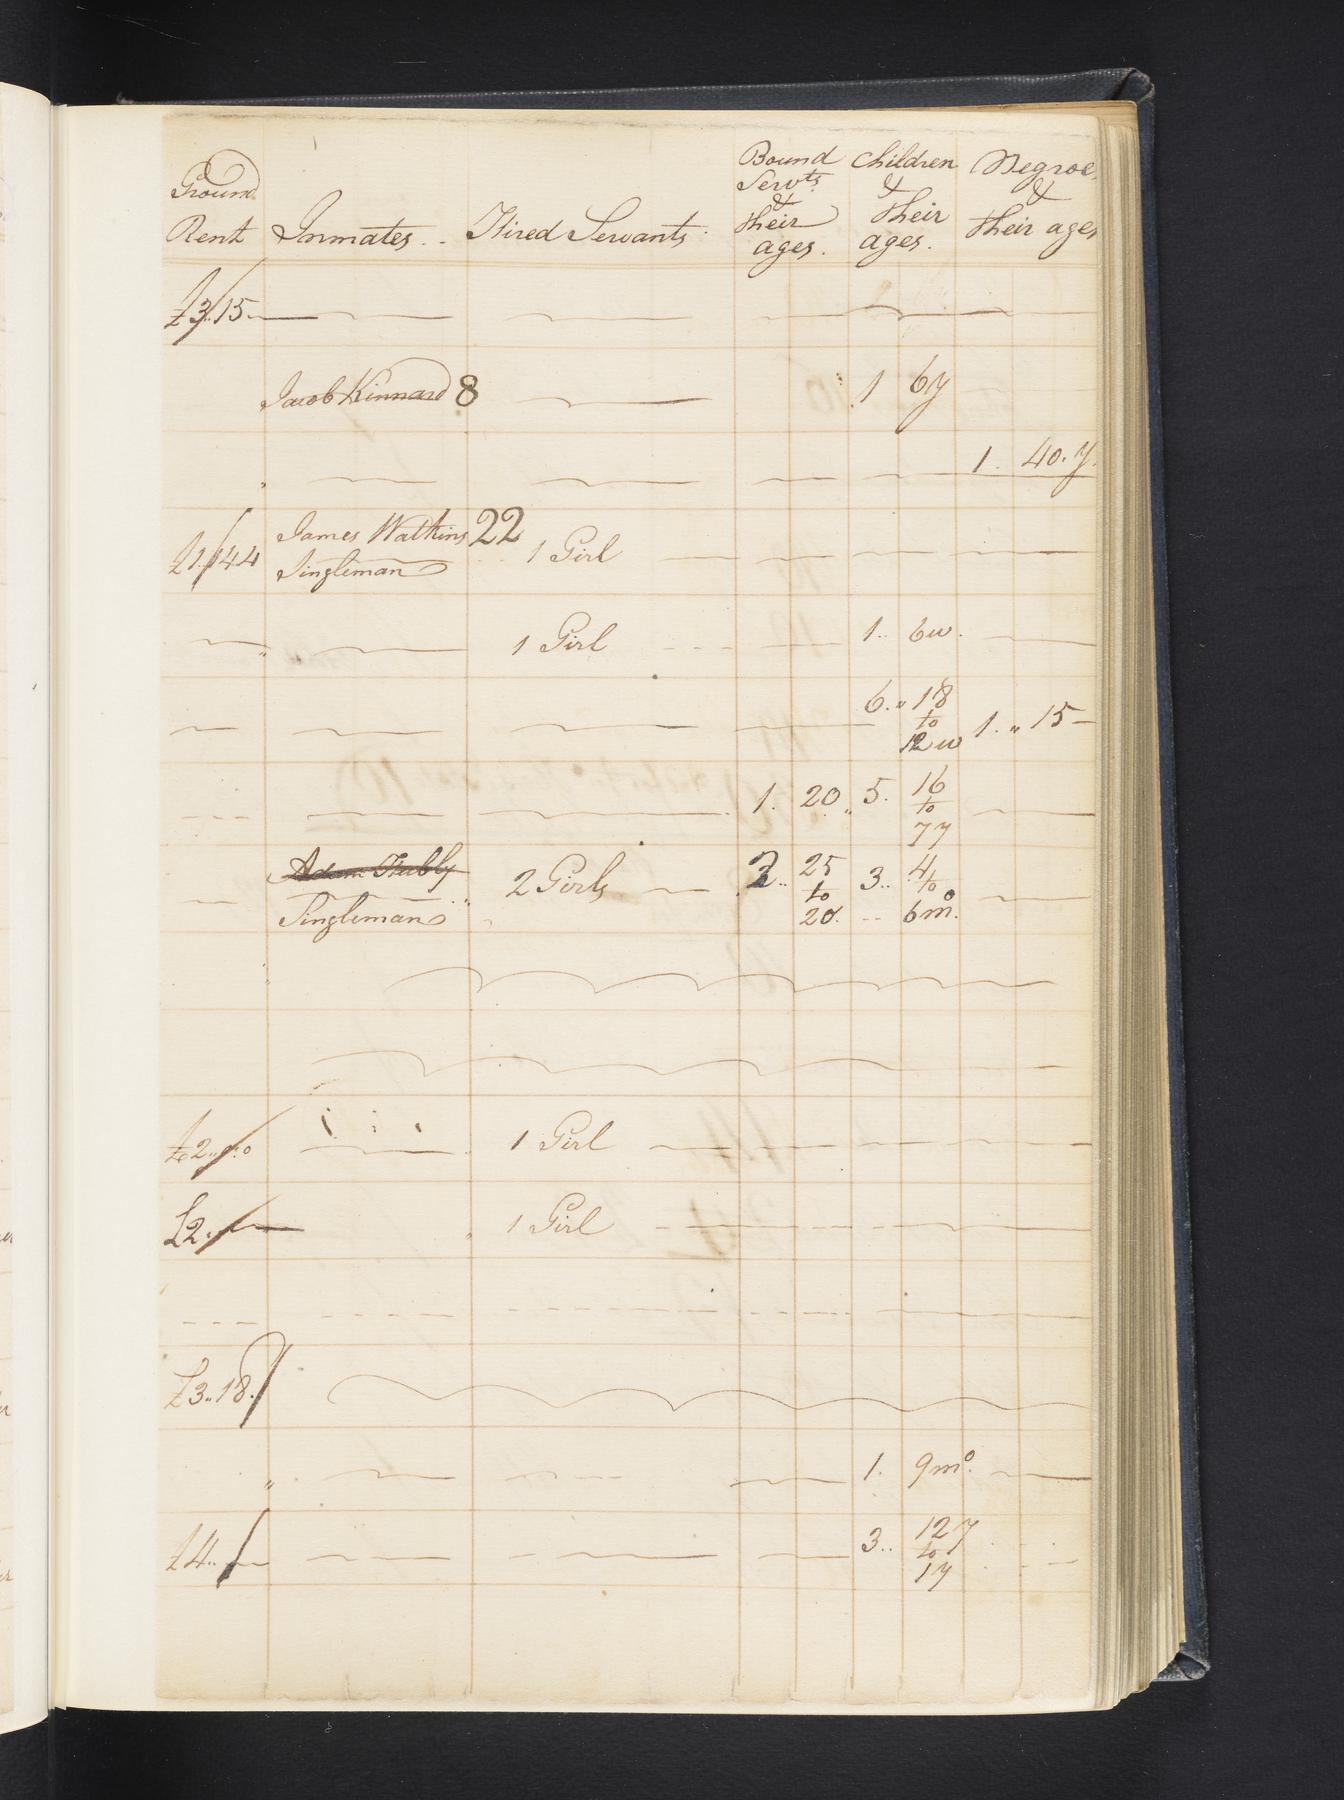 Ground Rent
Inmates
Hired Servants
Bound Servts & their ages.
Children & their ages.
Negroe & their ages
£3..15
Jacob Kinnard 8
1 6y
1. 40.y.
£1..144 James Watkins 22 1 Girl
Singleman
1 Girl 1.. 6w.
6.. 18 to 12w 1. 15
1. 20 5. 16 to 7y
Singleman 2 Girls 2.. 25 to 20. 3.. 4 to 6mo.
£2.. 1 Girl
£2.. 1 Girl
£3..18.
1. 9mo.
£4.. 3.. 12y to 1y